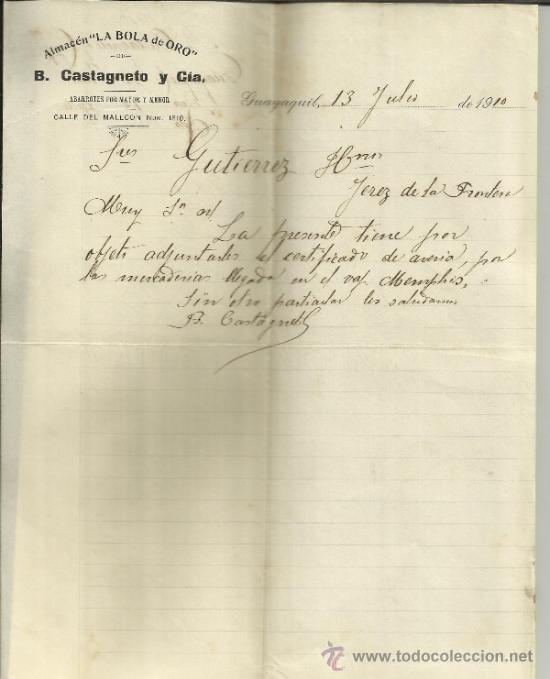 Almacén "LA BOLA de ORO"
DE
B. Castagneto y Cía.
ABARROTES POR MAYOR Y MENOR
CALLE DEL MALECON Num. 1510.
Guayaquil, 13 Julio de 1910
Sres Gutierrez Hnos
Jerez de la Frontera
Muy Sr.
La presente tiene por
objeto adjuntarles el certificado de averia, por
las mercaderias llegada en el vap. Memphis.
Sin otro particular les saludamos
B. Castagneto
todocoleccion
www.todocoleccion.net